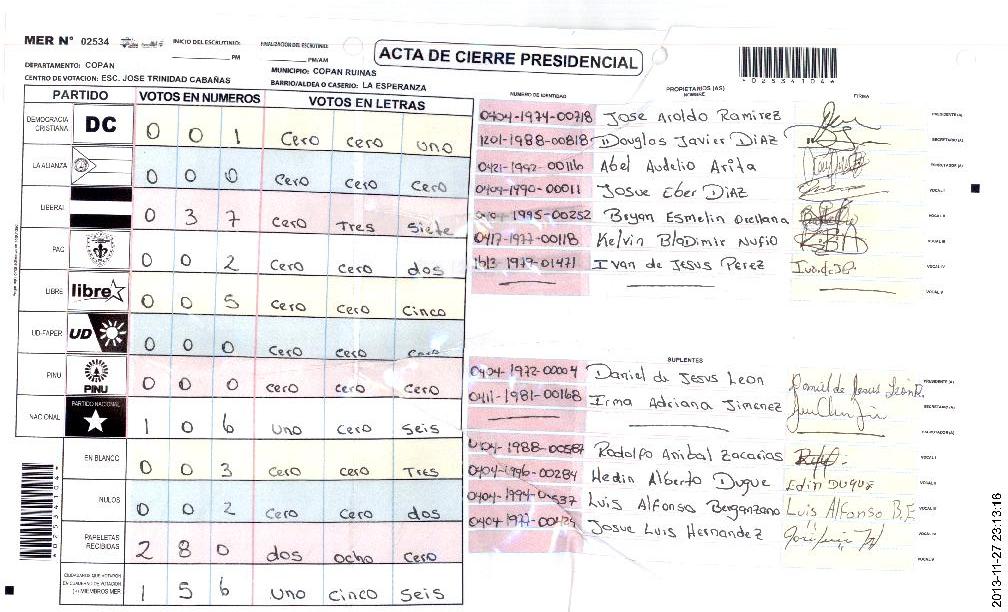 MER N° 02534
INICIO DEL ESCRUTINIO: PM
FINALIZACION DEL ESCRUTINIO: PM/AM
ACTA DE CIERRE PRESIDENCIAL
*02534104*
DEPARTAMENTO: COPAN
MUNICIPIO: COPAN RUINAS
CENTRO DE VOTACION: ESC. JOSE TRINIDAD CABAÑAS
BARRIO/ALDEA O CASERIO: LA ESPERANZA
PARTIDO VOTOS EN NUMEROS VOTOS EN LETRAS
DEMOCRACIA CRISTIANA DC 0 0 1 Cero cero uno
LA ALIANZA 0 0 0 cero cero cero
LIBERAL 0 3 7 cero Tres siete
PAC 0 0 2 cero cero dos
LIBRE libre 0 0 5 cero cero cinco
UD-FAPER UD 0 0 0 cero cero cero
PINU PINU 0 0 0 cero cero cero
NACIONAL PARTIDO NACIONAL 1 0 6 uno cero seis
EN BLANCO 0 0 3 cero cero Tres
NULOS 0 0 2 cero cero dos
PAPELETAS RECIBIDAS 2 8 0 dos ocho cero
CIUDADANOS QUE VOTARON EN CUADERNO DE VOTACION (+) MIEMBROS MER 1 5 6 uno cinco seis
*02534104*
PROPIETARIOS (AS)
NUMERO DE IDENTIDAD NOMBRE FIRMA
0404-1974-00718 Jose Aroldo Ramirez PRESIDENTE(A)
1201-1988-00818 Douglas Javier DiAZ SECRETARIO(A)
0421-1992-00116 Abel Audelio Arita ESCRUTADOR (A)
0404-1990-00011 Josue Eber DiAZ VOCAL I
1995-00252 Bryan Esmelin Orellana VOCAL II
0417-1977-00118 Kelvin Bladimir Nufio VOCAL III
1613-1979-01471 Ivan de Jesus Perez VOCAL IV
VOCAL V
SUPLENTES
0404-1972-00004 Daniel de Jesus Leon Daniel de Jesus León R. PRESIDENTE (A)
0411-1981-00168 Irma Adriana Jimenez SECRETARIO (A)
ESCRUTADOR (A)
0404-1988-00587 Rodolfo Anibal Zacarias VOCAL I
0404-1996-00284 Hedin Alberto Duque Edin DUQUE VOCAL II
0404-1994- Luis Alfonso Berganzano Luis Alfonso B. VOCAL III
0404-1977- Josue Luis Hernandez VOCAL IV
VOCAL V
2013-11-27 23:13:16